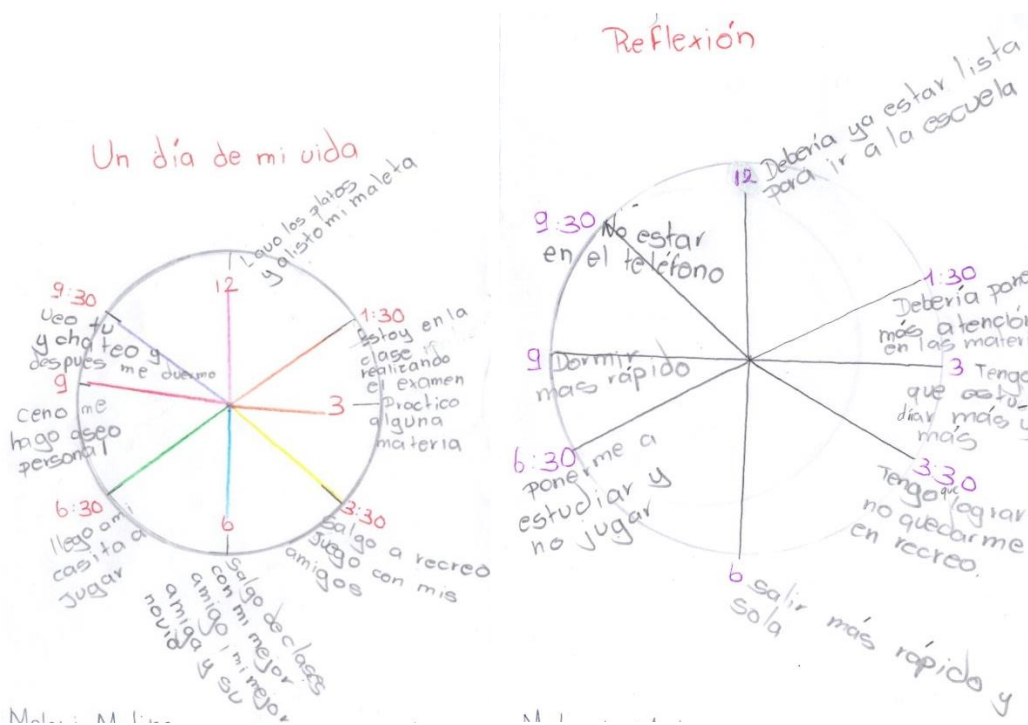 Un día de mi vida
12
Lavo los platos
y alisto mi maleta
1:30
Estoy en la
clase
realizando
el examen
3
Practico
alguna
materia
3:30
Salgo a recreo
juego con mis
amigos
6
Salgo de clases
con mi mejor
amigo mi mejor
amiga y su
novio
6:30
llego a mi
casita a
jugar
9
ceno me
hago aseo
personal
9:30
veo tv
y chateo y
despues me duermo
Reflexión
12
Debería ya estar lista
para ir a la escuela
1:30
Debería pone
más atención
en las materi
3
Tengo
que estu
diar más y
más
3:30
Tengo que lograr
no quedarme
en recreo.
6
Salir más rápido y
sola
6:30
ponerme a
estudiar y
no jugar
9
Dormir
mas rápido
9:30
No estar
en el teléfono